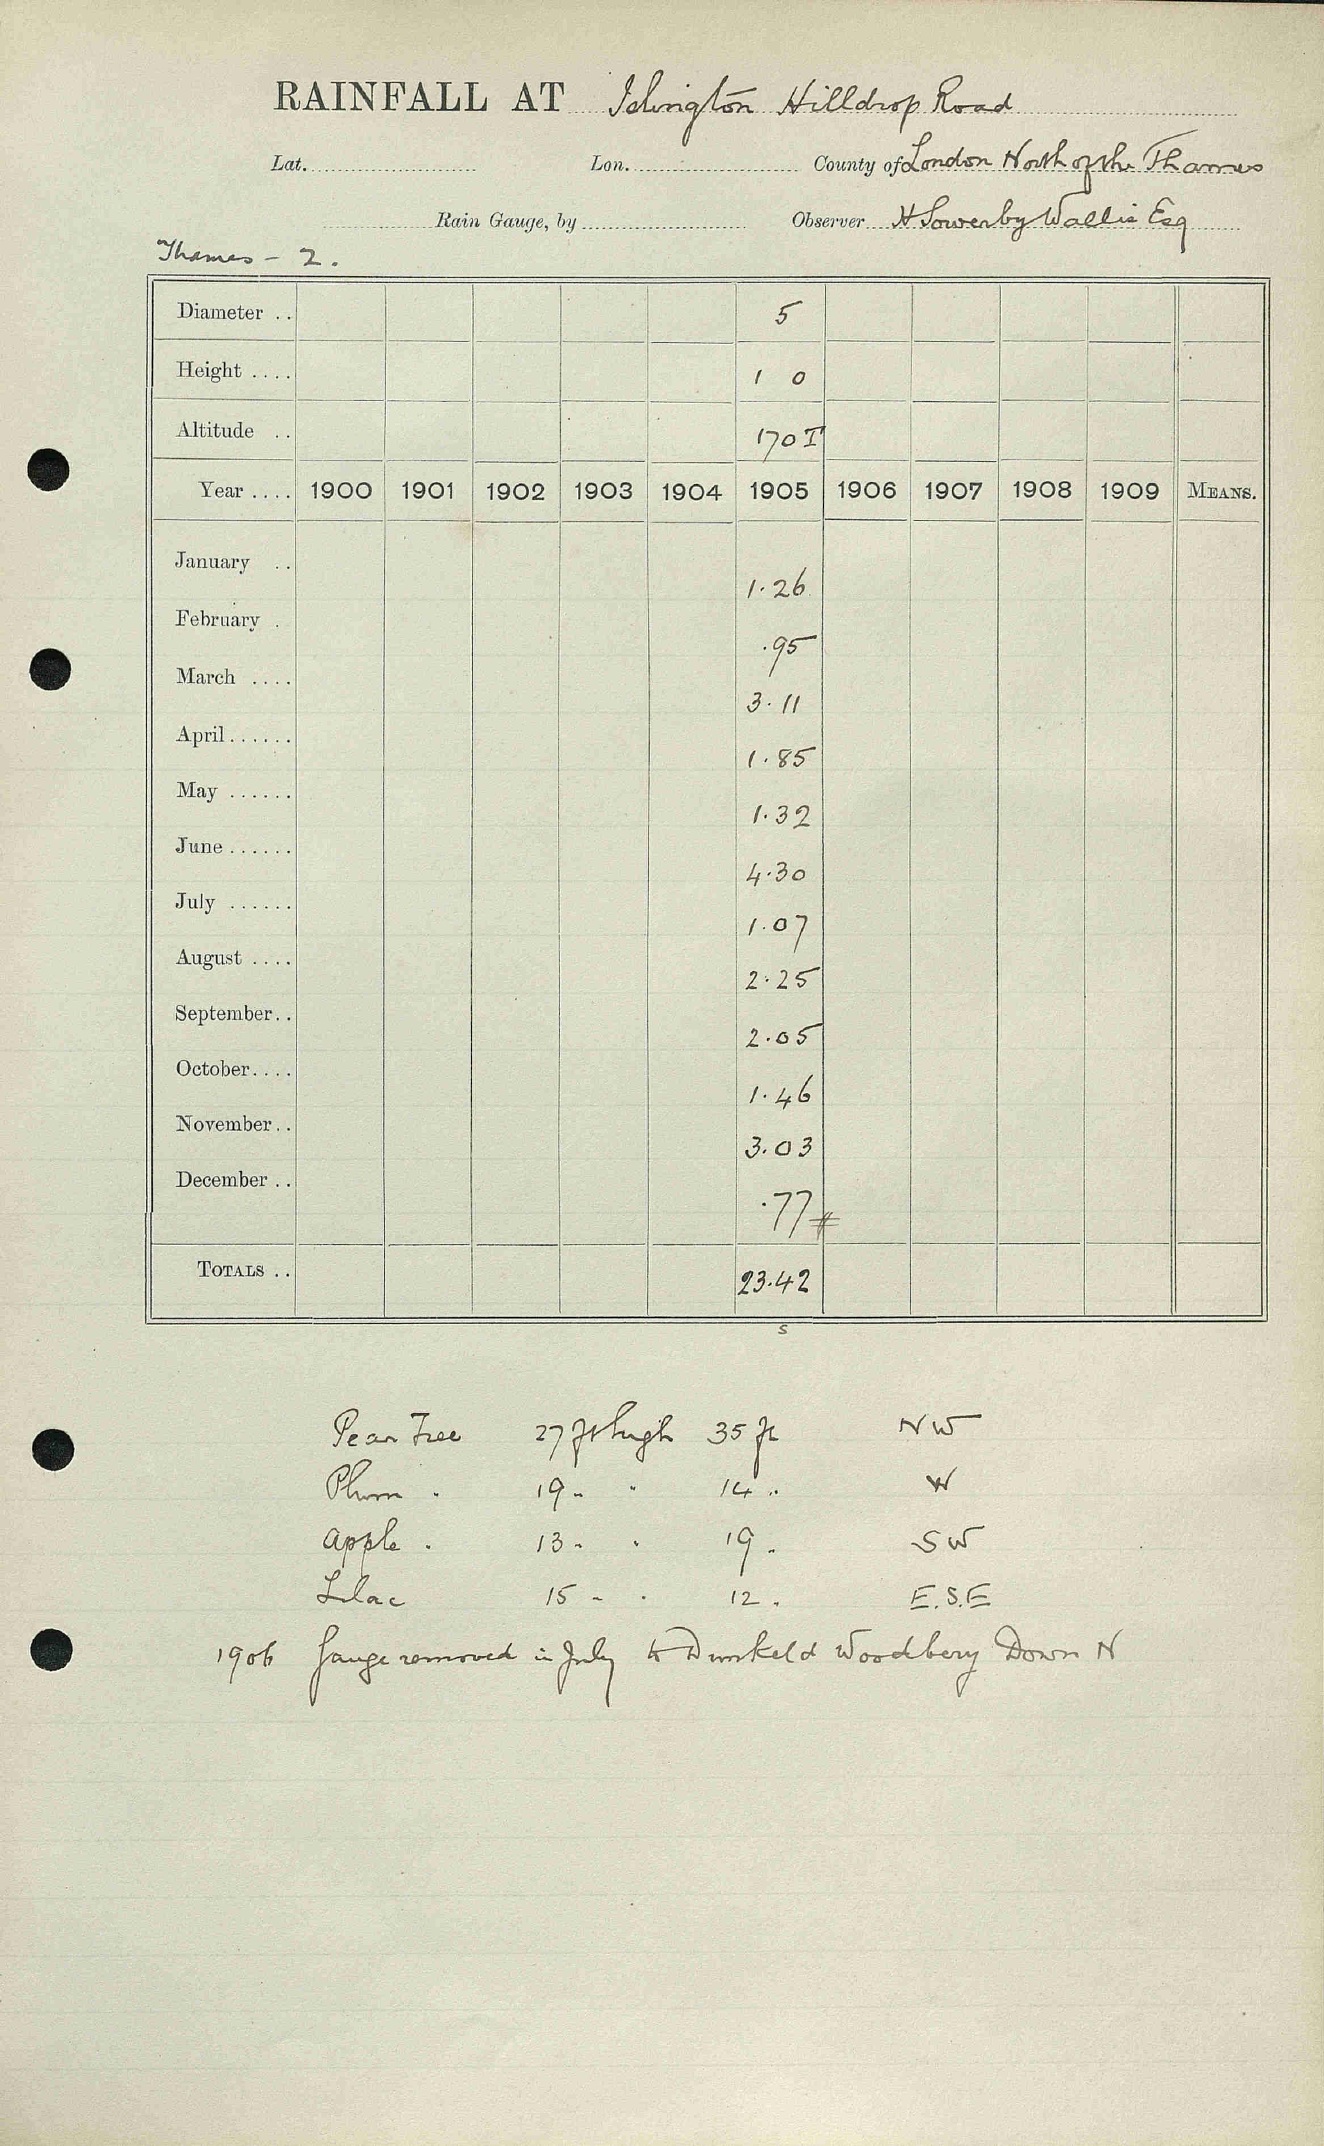 RAINFALL AT Islington Hilldrop Road
Lat. Lon. County of London North of the Thames
Rain Gauge, by Observer H Sowerby Wallis Esq
Thames - 2.
Diameter .. 5
Height .... 1 0
Altitude .. 170 T
Year .... 1900 1901 1902 1903 1904 1905 1906 1907 1908 1909 MEANS.
January .. 1.26
February . .95
March .... 3.11
April...... 1.85
May ...... 1.32
June ...... 4.30
July ...... 1.07
August .... 2.25
September.. 2.05
October.... 1.46
November.. 3.03
December .. .77 #
TOTALS .. 23.42
s
Pear Tree 27 ft high 35 ft NW
Plum " 19 " " 14 " W
Apple " 13 " " 19 " SW
Lilac 15 " " 12 " E.S.E
1906 Gauge removed in July to Dunkeld Woodbery Down N